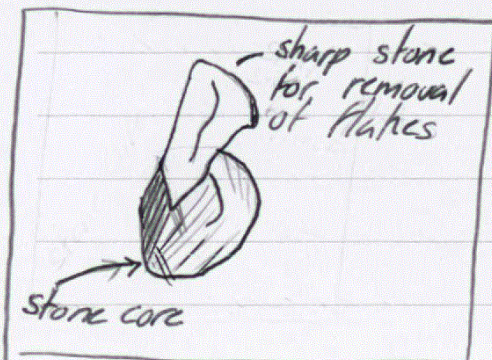 sharp stone
for removal
of flakes
stone core